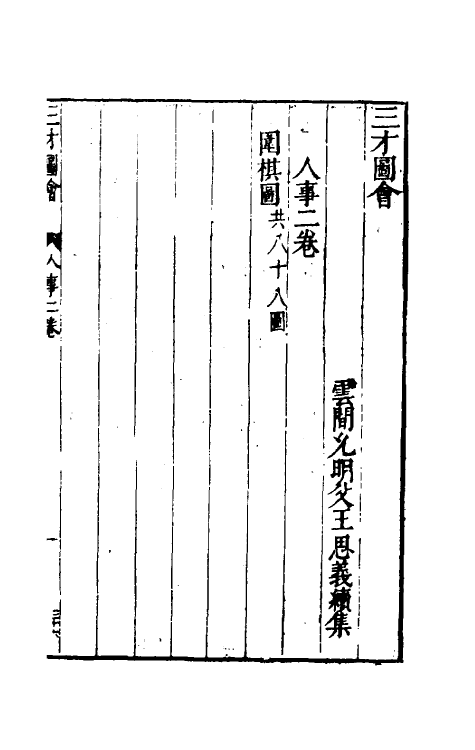 三才圖會
雲間允明父王思義續集
人事二卷
圍棋圖共八十八圖
三才圖會 人事二卷 一